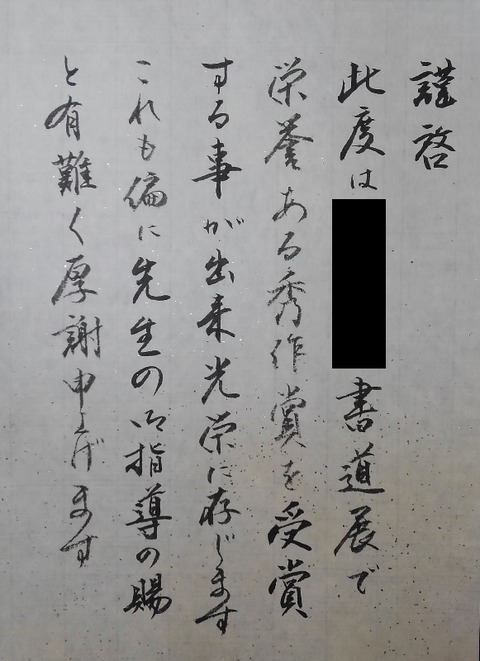 謹啓
此度は書道展で
栄誉ある秀作賞を受賞
する事が出来光栄に存じます
これも偏に先生の御指導の賜
と有難く厚謝申上げます